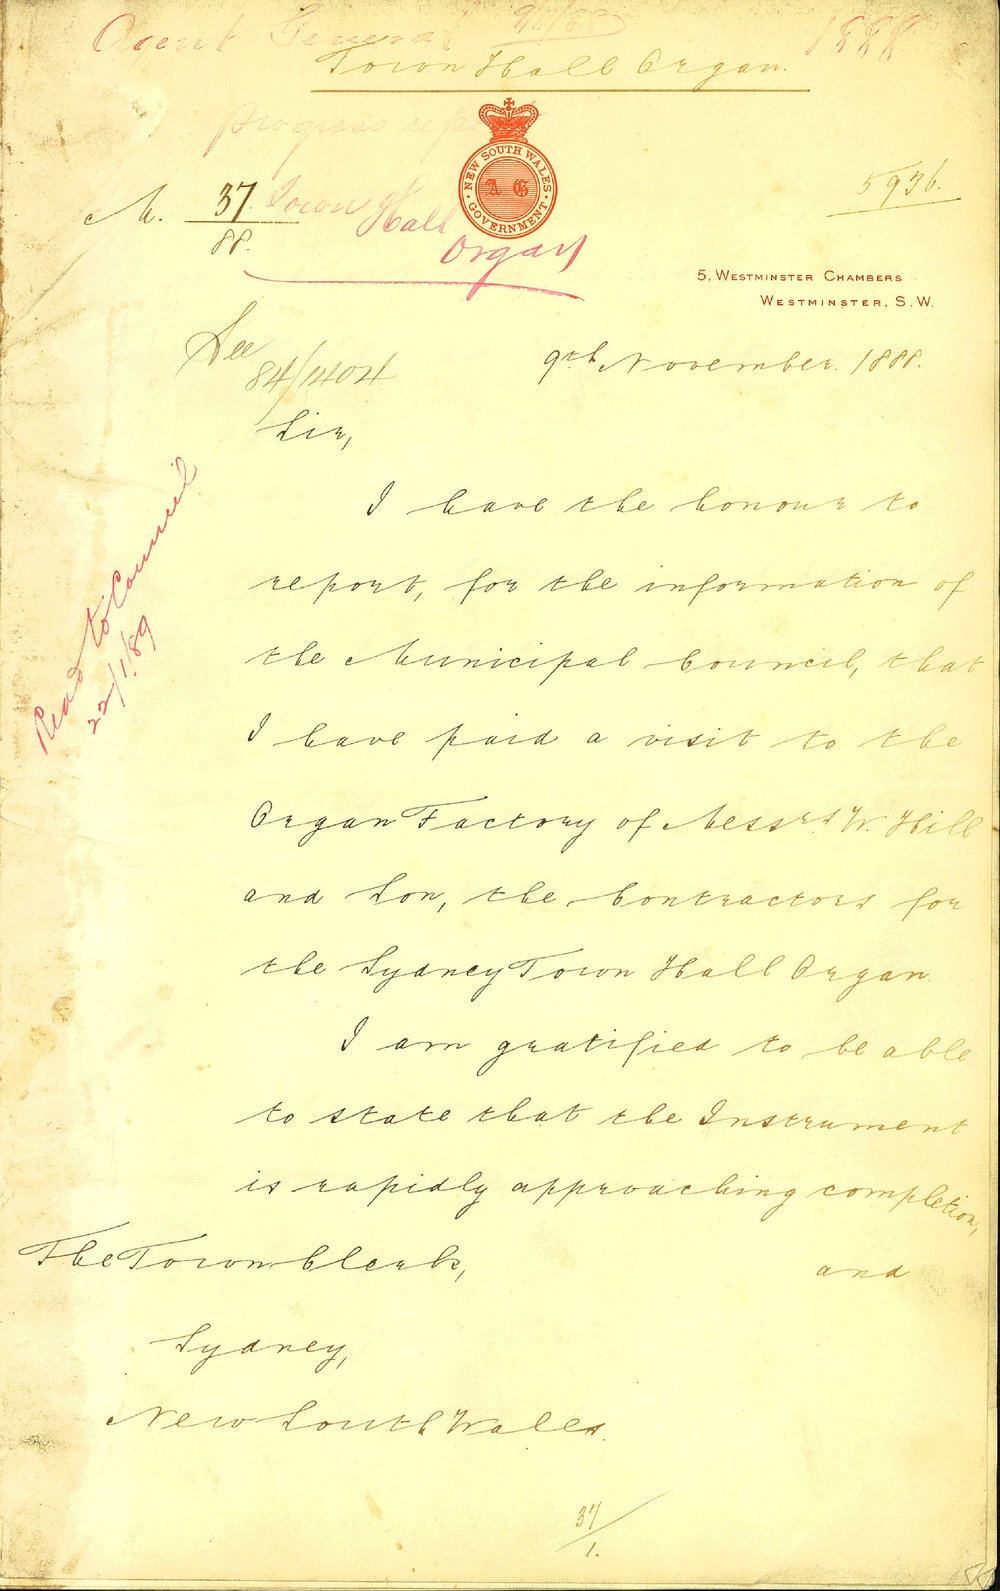 Agent General 9/11/88 1888
Town Hall Organ.
Progress report
Town Hall
Organ
NEW SOUTH WALES
A G
GOVERNMENT
M. 37/88.
5936.
5, Westminster Chambers
Westminster, S.W.
See
84/1404
9th November 1888.
Sir,
I have the honour to
report, for the information of
the Municipal Council, that
I have paid a visit to the
Organ Factory of Messrs. W. Hill
and Son, the Contractors for
the Sydney Town Hall Organ.
I am gratified to be able
to state that the Instrument
is rapidly approaching completion,
and
The Town Clerk,
Sydney,
New South Wales.
Read to Council
22/1/89
37/1.